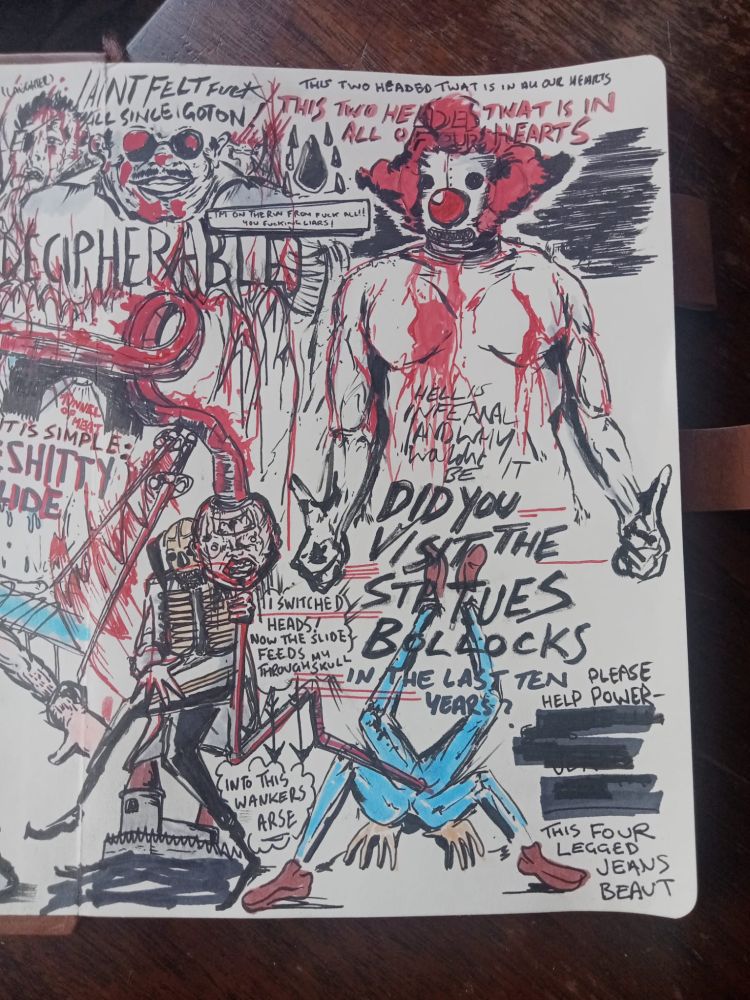 (LAUGHTER)
I AINT FELT FUCK
ALL SINCE I GOT ON!
THIS TWO HEADED TWAT IS IN ALL OUR HEARTS
THIS TWO HEADED TWAT IS IN
ALL OF OUR HEARTS
I'M ON THE RUN FROM FUCK ALL!!
YOU FUCKING LIARS!
DECIPHERABLE
TUNNEL
OF MEAT
IT IS SIMPLE:
SHITTY
HELL IS
INFERNAL
AND WHY
WOULDNT IT
BE
DID YOU
VISIT THE
STATUES
BOLLOCKS
IN THE LAST TEN
YEARS?
I SWITCHED
HEADS!
NOW THE SLIDE
FEEDS MY
THROUGHSKULL
INTO THIS
WANKERS
ARSE
PLEASE
HELP POWER-
THIS FOUR
LEGGED
JEANS
BEAUT